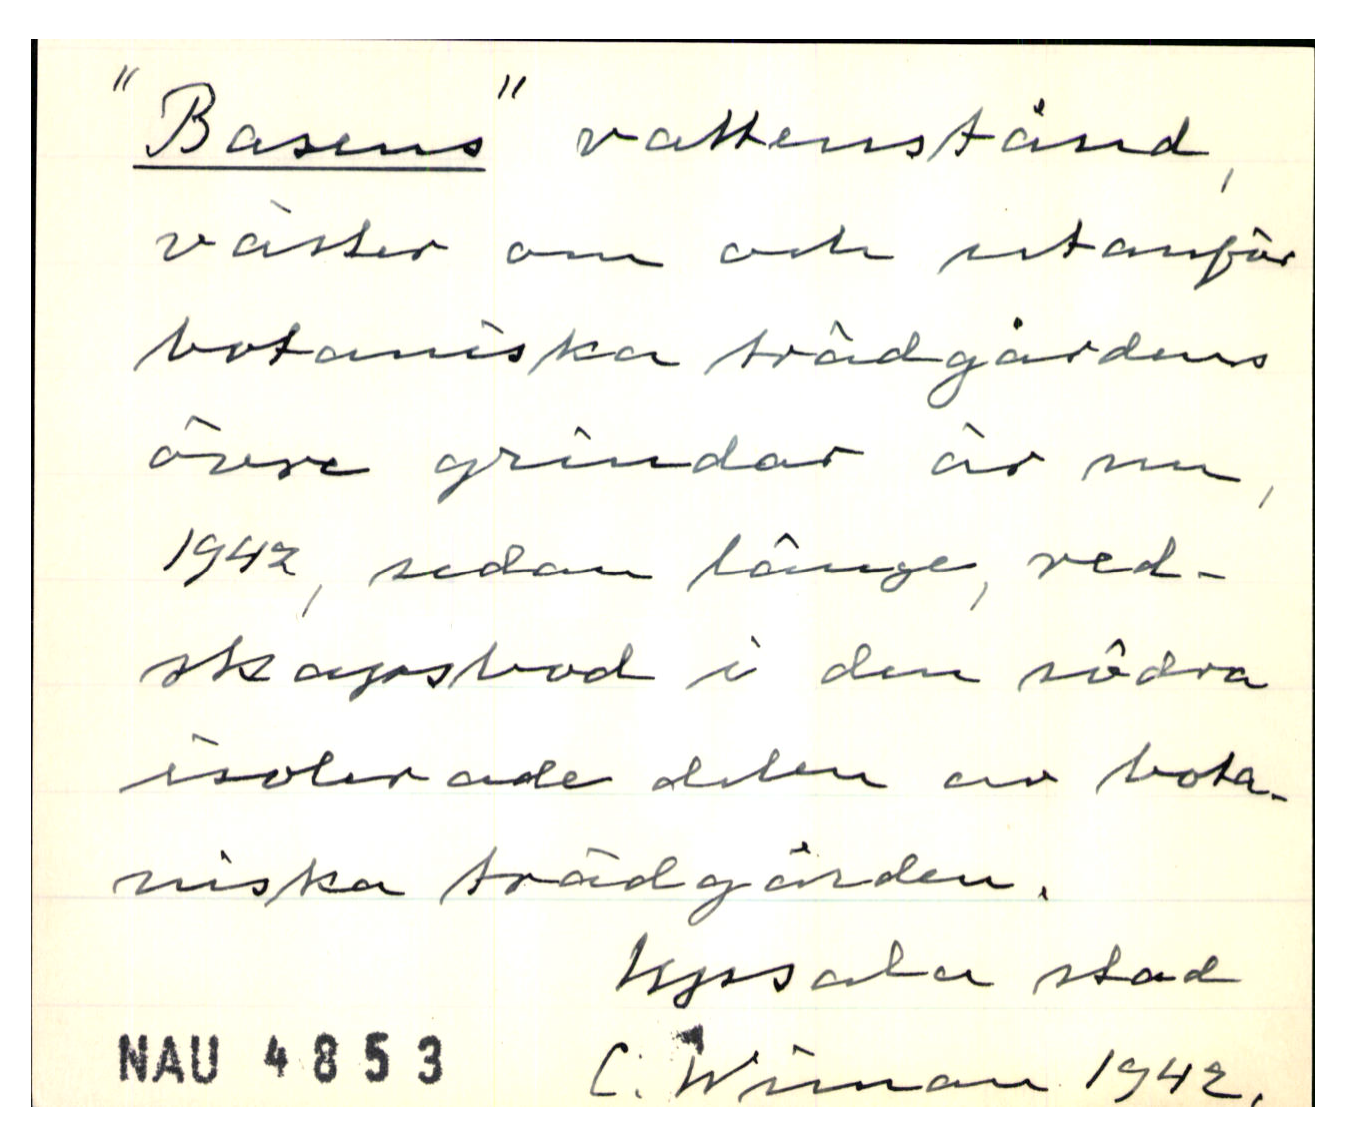 "Basens" vattenstånd,
väster om och utanför
botaniska trädgårdens
övre grindar är nu,
1942, sedan länge, red-
skapsbod i den södra
isolerade delen av bota-
niska trädgården.
Uppsala stad
NAU 4853 C. Wiman 1942.